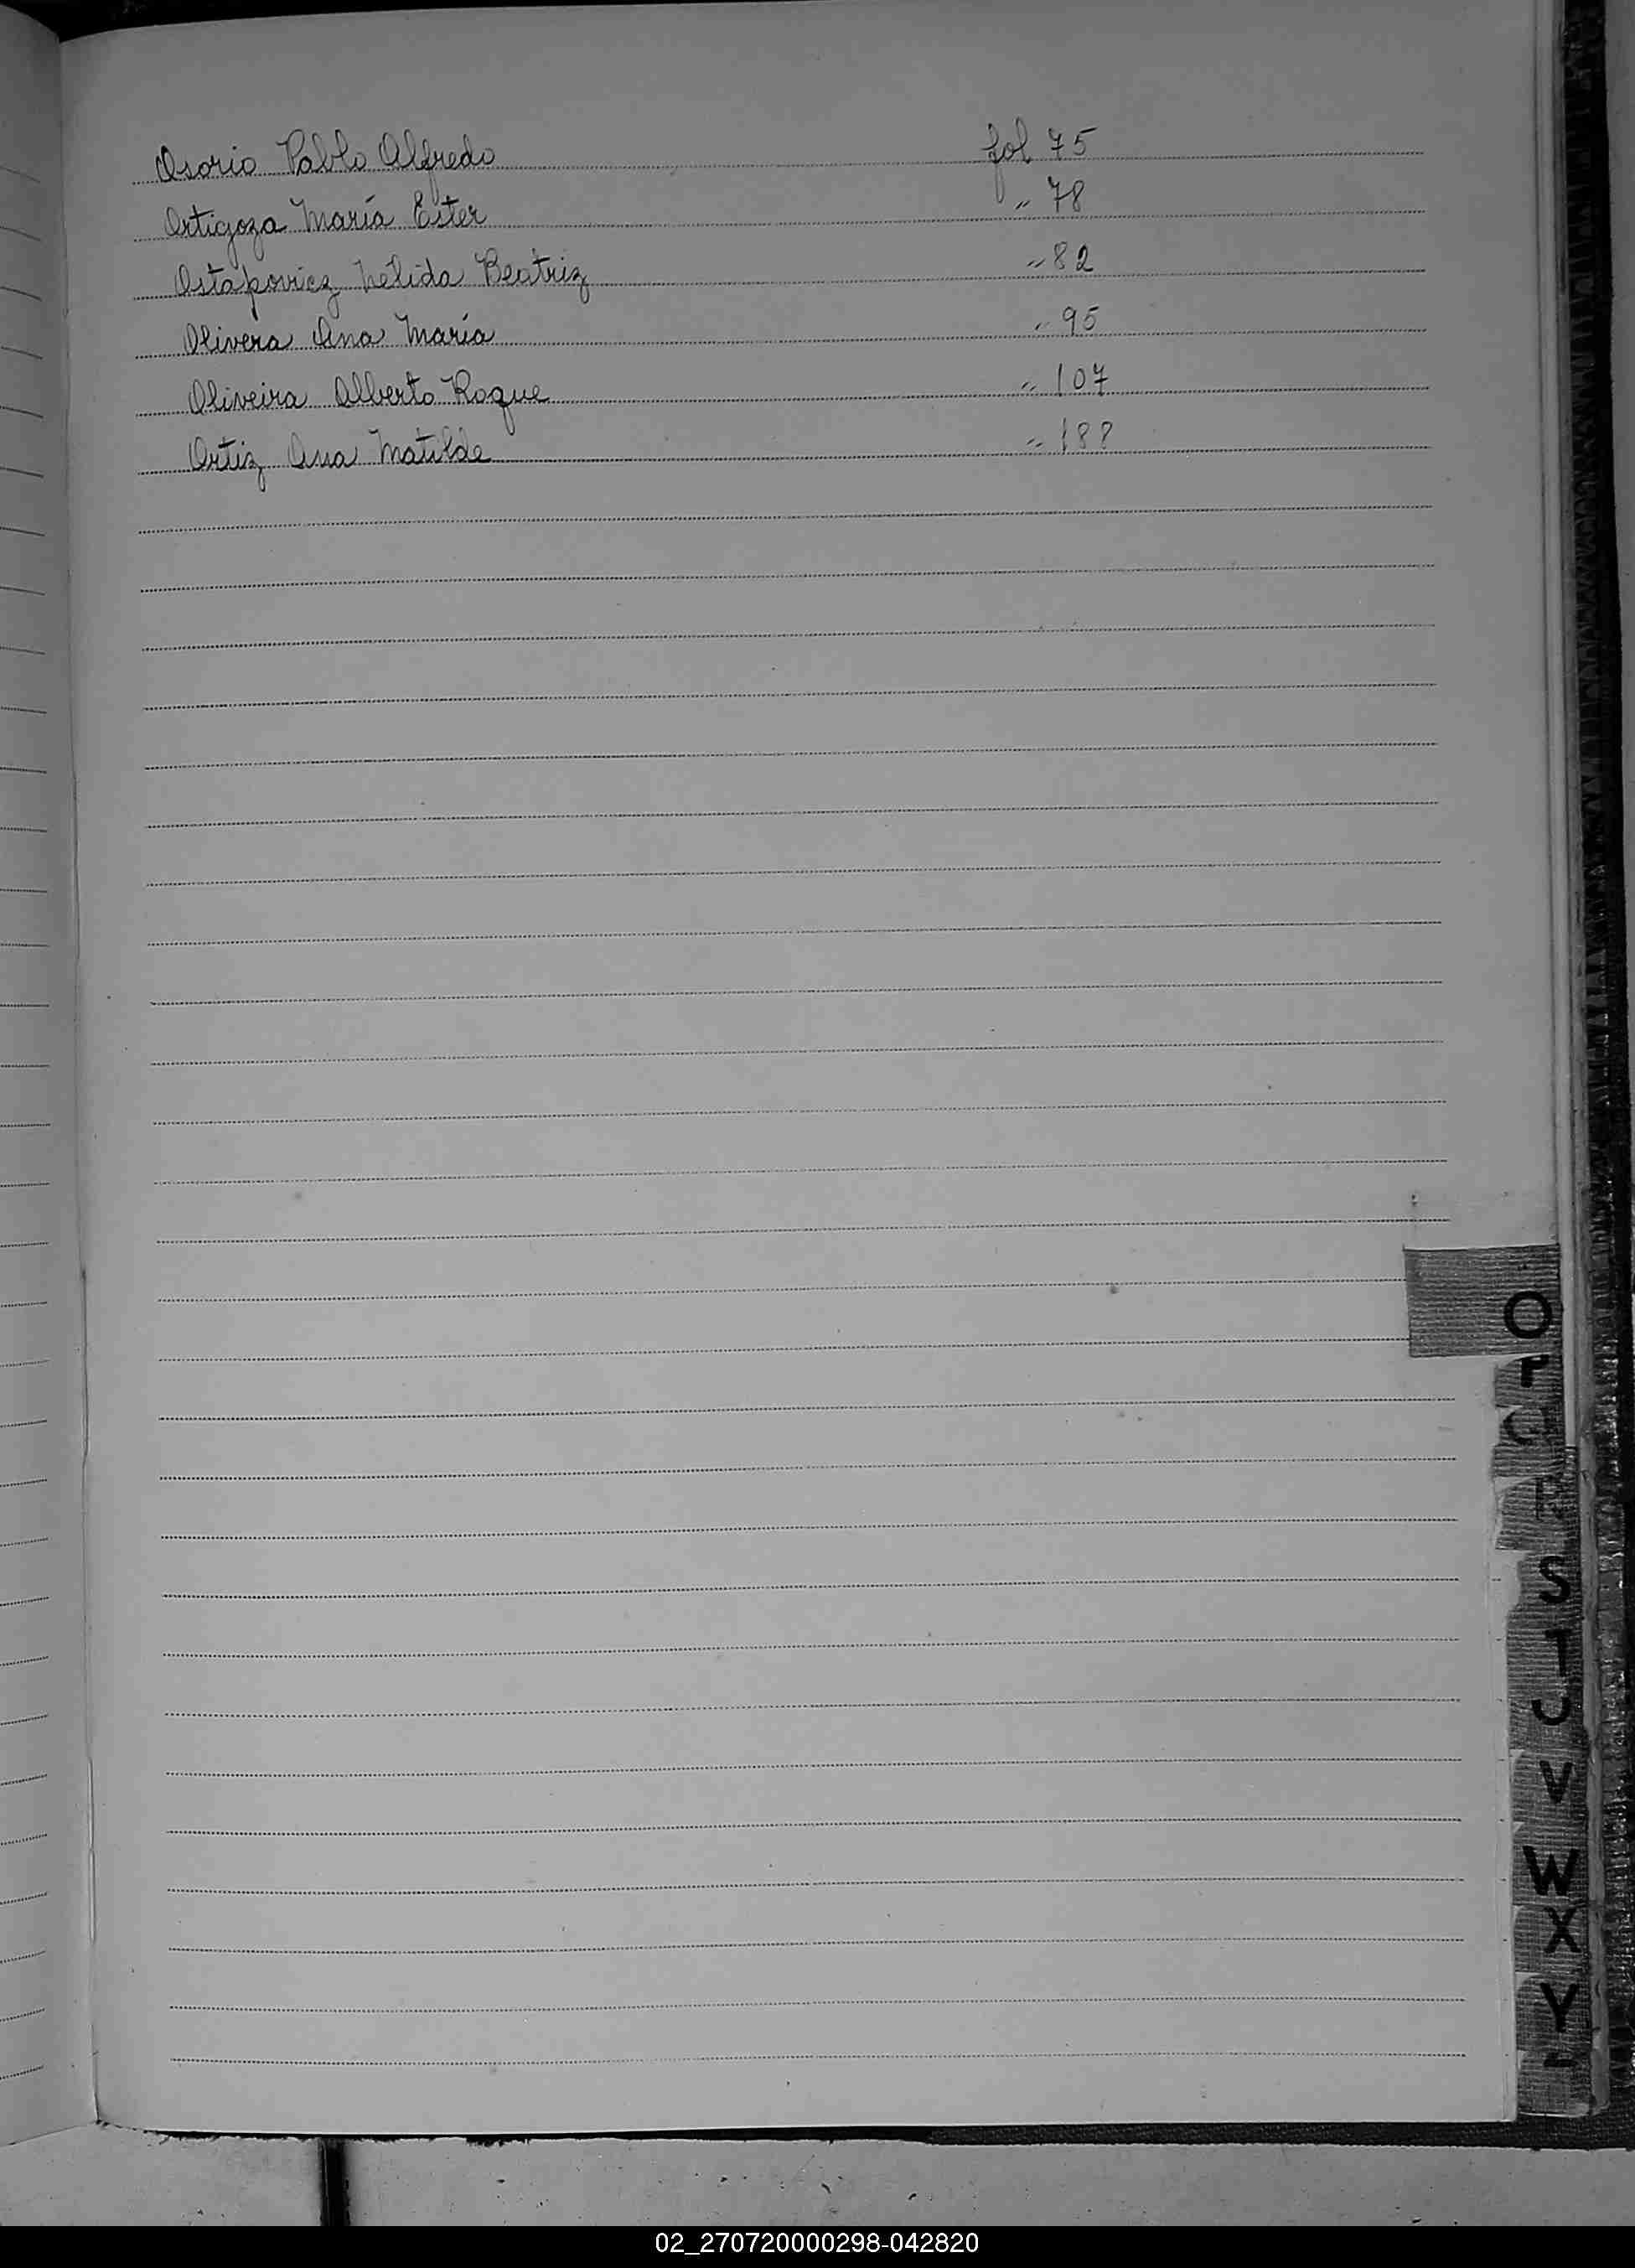 Osorio Pablo Alfredo fol 75
Ortigoza María Ester " 78
Ostapovicz Nélida Beatriz " 82
Olivera Ana María " 95
Oliveira Alberto Roque " 107
Ortiz Ana Matilde " 188
O
P
S
T
U
V
W
X
Y
02_270720000298-042820